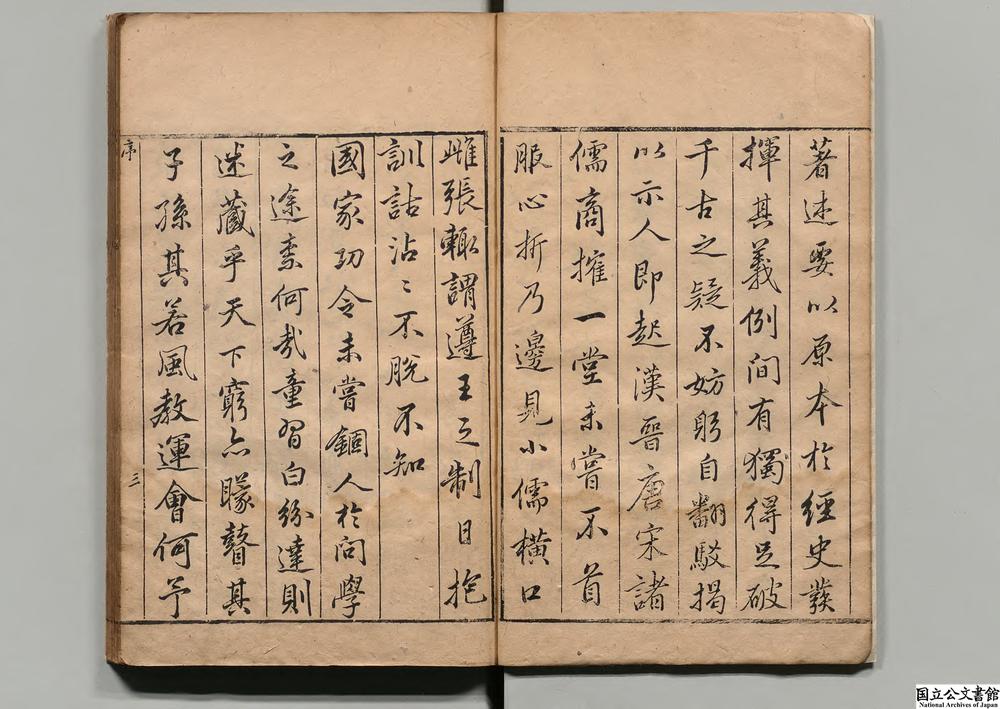 著述要以原本於經史發
揮其義例間有獨得足破
千古之疑不妨躬自翻駁揭
以示人即起漢晉唐宋諸
儒商搉一堂未嘗不首
服心折乃邊見小儒橫口
雌張輒謂遵王之制日抱
訓詁沾〻不脫不知
國家功令未嘗錮人於問學
之途柰何哉童習白紛達則
迷蔵乎天下窮亦矇瞽其
子孫其若風教運會何予
序
三
国立公文書館
National Archives of Japan